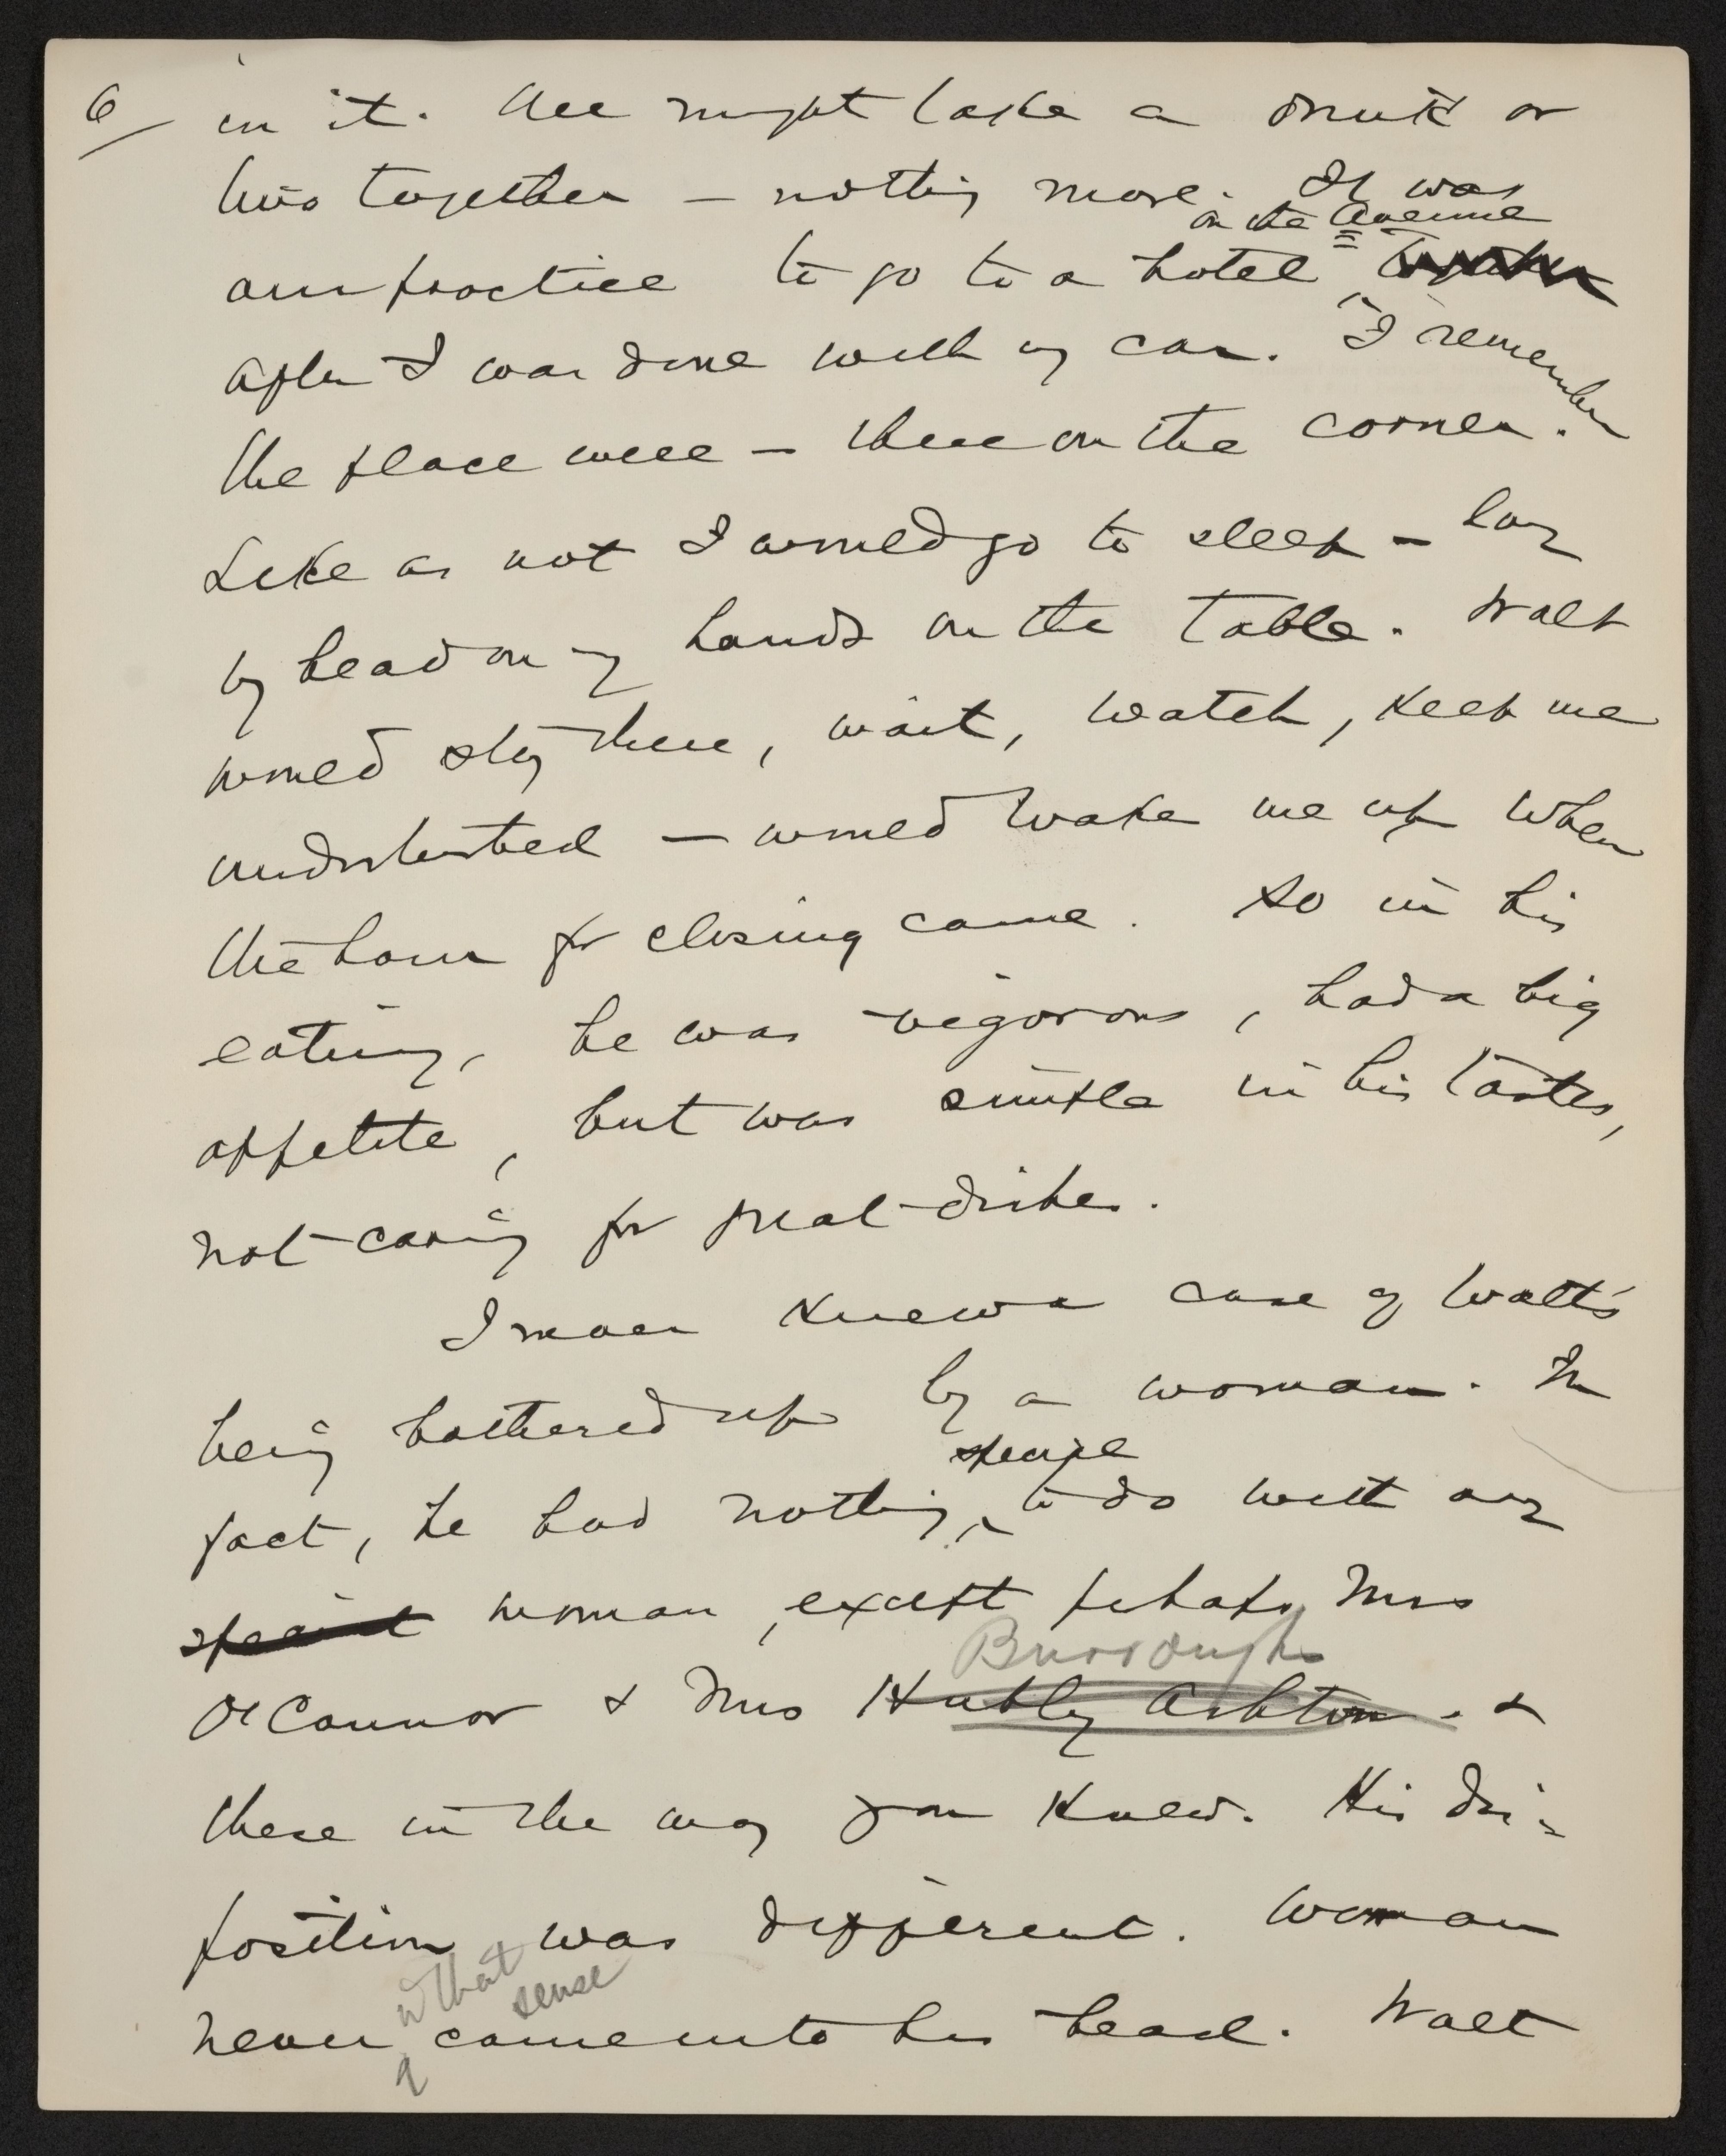 6/ in it. We might take a drink or
two together — nothing more. It was
on the Avenue
our practice to go to a hotel
after I was done with my car. I remember
the place well — there on the corner.
Like as not I would go to sleep — lay
my head on my hands on the table. Walt
would stay there, wait, watch, keep me
undisturbed — would wake me up when
the hour for closing came. So in his
eating, he was vigorous, had a big
appetite, but was simple in his tastes,
not caring for great dishes.
I never knew a case of Walt's
being bothered up by a woman. In
special
fact, he had nothing to do with any
special woman, except perhaps Mrs
Burroughs
O'Connor & Mrs Hubley Ashton. &
these in the way you knew. His dis-
position was different. Woman
what
sense
never came into his head. Walt
?